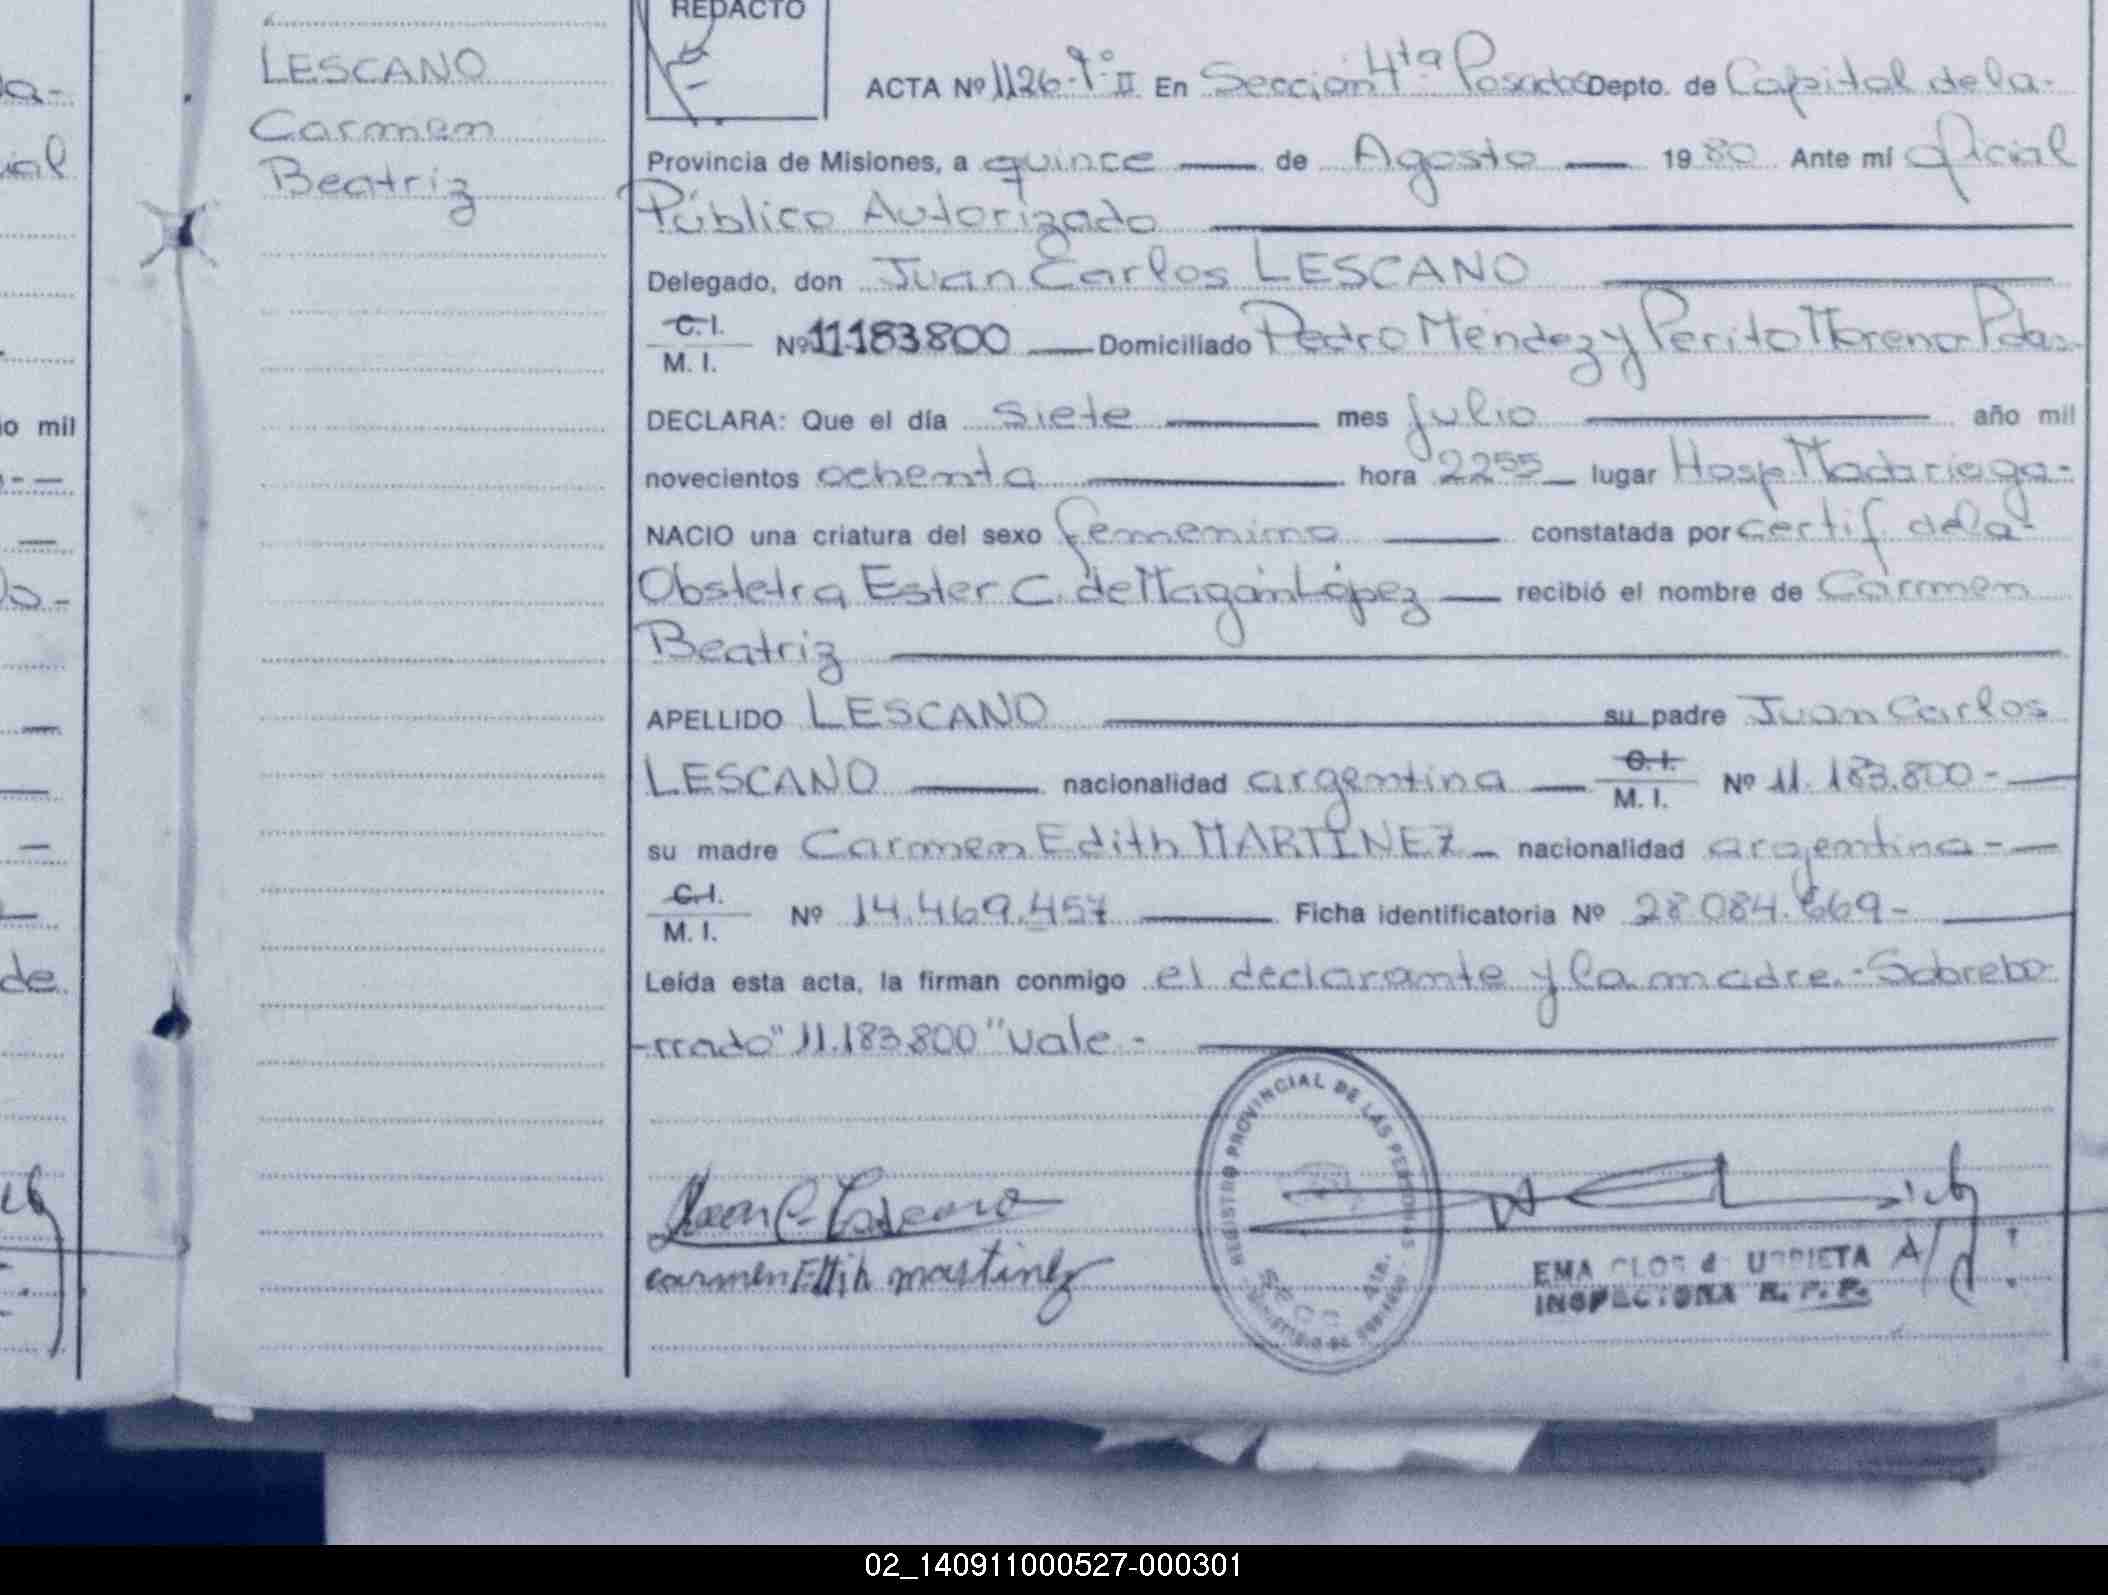 REDACTO
LESCANO
Carmen
Beatriz
ACTA Nº 1126-Tº II En Sección 4ta Posadas Depto. de Capital de la-
Provincia de Misiones, a quince de Agosto 1980 Ante mí oficial
Público Autorizado
Delegado, don Juan Carlos LESCANO
C.I.
M.I. Nº 11183800 Domiciliado Pedro Méndez y Perito Moreno Pdas.
DECLARA: Que el día siete mes julio año mil
novecientos ochenta hora 2255 lugar Hosp. Madariaga-
NACIO una criatura del sexo femenino constatada por certif. de la-
Obstetra Ester C. de Magán López recibió el nombre de Carmen
Beatriz
APELLIDO LESCANO su padre Juan Carlos
LESCANO nacionalidad argentina C.I. M.I. Nº 11.183.800-
su madre Carmen Edith MARTINEZ nacionalidad argentina-
C.I.
M.I. Nº 14.469.457 Ficha identificatoria Nº 28.084.669-
Leída esta acta, la firman conmigo el declarante y la madre.-Sobrebo-
-rrado "11.183.800" vale-
Juan C. Lescano
carmen Ettih martinez
REGISTRO PROVINCIAL DE LAS PERSONAS
SECC. 4ta.
EMA CLOS de URRIETA A/
INSPECTORA R. P. P.
io mil
de
02_140911000527-000301